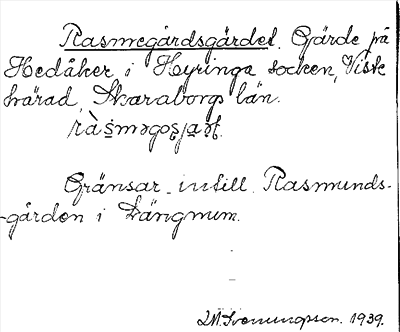 Rasmegårdsgärdet. Gärde på
Hedåker i Hyringa socken, Viste
härad, Skaraborgs län.
Gränsar intill Rasmunds-
-gården i Längnum.
1939.